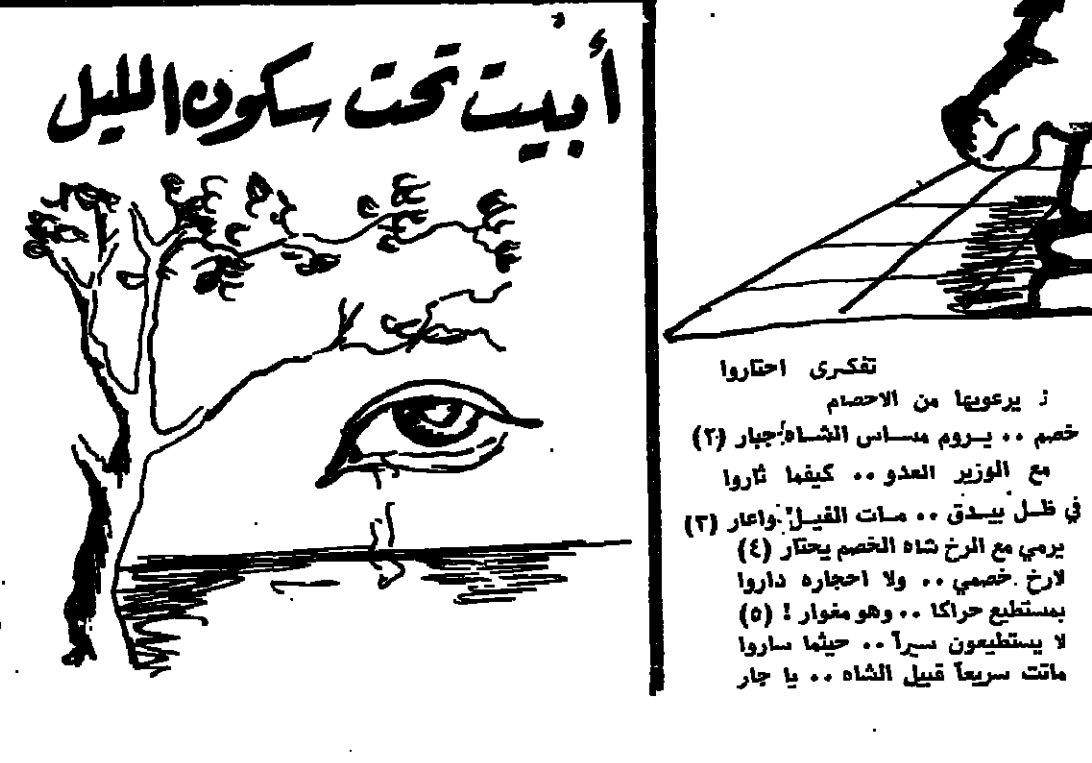 أبيت تحت سكون الليل
تفكرى احتاروا
يرعويها من الاحصام
خصم .. يـروم مسـاس الشـاه جبار (٢)
مع الوزير العدو .. كيفما ثاروا
في ظـل بيـدق .. مـات الفيـل واعار (٣)
يرمي مع الرخ شاه الخصم يحتار (٤)
لارخ خصمي .. ولا احجاره داروا
بمستطيع حراكا .. وهو مغوار ! (٥)
لا يستطيعون سيراً .. حيثما ساروا
ماتت سريعاً قبيل الشاه .. يا جار